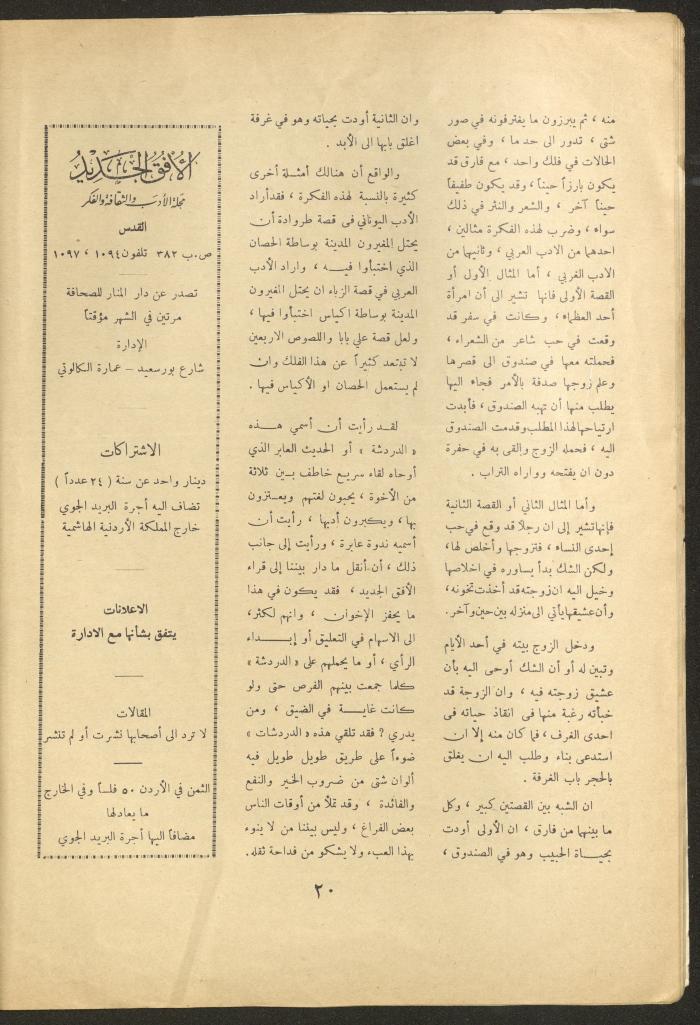 منه ، ثم يبرزون ما يفترقونه في صور
شتى ، تدور الى حد ما ، وفي بعض
الحالات في فلك واحد ، مع فارق قد
يكون بارزاً حيناً ، وقد يكون طفيفاً
حيناً آخر ، والشعر والنثر في ذلك
سواء ، وضرب لهذه الفكرة مثالين ،
احدهما من الادب العربي ، وثانيهما من
الادب الغربي ، أما المثال الأول أو
القصة الاولى فانها تشير الى أن امرأة
أحد العظماء ، وكانت في سفر قد
وقعت في حب شاعر من الشعراء ،
فحملته معها في صندوق الى قصرها
وعلم زوجها صدفة بالأمر فجاء اليها
يطلب منها أن تهبه الصندوق ، فأبدت
ارتياحها لهذا المطلب وقدمت الصندوق
اليه ، فحمله الزوج والقى به في حفرة
دون ان يفتحه وواراه التراب .
وأما المثال الثاني أو القصة الثانية
فإنها تشير إلى ان رجلاً قد وقع في حب
إحدى النساء ، فتزوجها وأخلص لها ،
ولكن الشك بدأ يساوره في اخلاصها
وخيل اليه ان زوجته قد أخذت تخونه ،
وأن عشيقها يأتي الى منزله بين حين وآخر .
ودخل الزوج بيته في أحد الأيام
وتبين له أو أن الشك أوحى اليه بأن
عشيق زوجته فيه ، وان الزوجة قد
خبأته رغبة منها في انقاذ حياته في
احدى الغرف ، فما كان منه إلا ان
استدعى بناء وطلب اليه ان يغلق
بالحجر باب الغرفة .
ان الشبه بين القصتين كبير ، وكل
ما بينهما من فارق ، ان الأولى أودت
بحياة الحبيب وهو في الصندوق ،
وان الثانية أودت بحياته وهو في غرفة
اغلق بابها الى الأبد .
والواقع أن هنالك أمثلة أخرى
كثيرة بالنسبة لهذه الفكرة ، فقد أراد
الأدب اليوناني في قصة طروادة أن
يحتل المغيرون المدينة بوساطة الحصان
الذي اختبأوا فيه ، واراد الأدب
العربي في قصة الزباء ان يحتل المغيرون
المدينة بوساطة اكياس اختبأوا فيها ،
ولعل قصة علي بابا واللصوص الاربعين
لا تبتعد كثيراً عن هذا الفلك وان
لم يستعمل الحصان او الأكياس فيها .
لقد رأيت أن أسمي هذه
« الدردشة » أو الحديث العابر الذي
أوحاه لقاء سريع خاطف بين ثلاثة
من الأخوة ، يحبون لغتهم ويعتزون
بها ، ويكبرون أدبها ، رأيت أن
أسميه ندوة عابرة ، ورأيت إلى جانب
ذلك ، أن أنقل ما دار بيننا إلى قراء
الأفق الجديد ، فقد يكون في هذا
ما يحفز الإخوان ، وانهم لكثر ،
الى الاسهام في التعليق أو إبداء
الرأي ، أو ما يحملهم على « الدردشة »
كلما جمعت بينهم الفرص حتى ولو
كانت غاية في الضيق ، ومن
يدري ؟ فقد تلقي هذه « الدردشات »
ضوءاً على طريق طويل طويل فيه
ألوان شتى من ضروب الخير والنفع
والفائدة ، وقد تملأ من أوقات الناس
بعض الفراغ ، وليس بيننا من لا ينوء
بهذا العبء ولا يشكو من فداحة ثقله .
الأفق الجديد
مجلة الأدب والثقافة والفكر
القدس
ص.ب ٣٨٢ تلفون ١٠٩٤ ، ١٠٩٧
تصدر عن دار المنار للصحافة
مرتين في الشهر مؤقتاً
الإدارة
شارع بور سعيد - عمارة الكالوتي
الاشتراكات
دينار واحد عن سنة ( ٢٤ عدداً )
تضاف اليه أجرة البريد الجوي
خارج المملكة الأردنية الهاشمية
الاعلانات
يتفق بشأنها مع الادارة
المقالات
لا ترد الى أصحابها نشرت أو لم تنشر
الثمن في الأردن ٥٠ فلساً وفي الخارج
ما يعادلها
مضافاً اليها أجرة البريد الجوي
٢٠